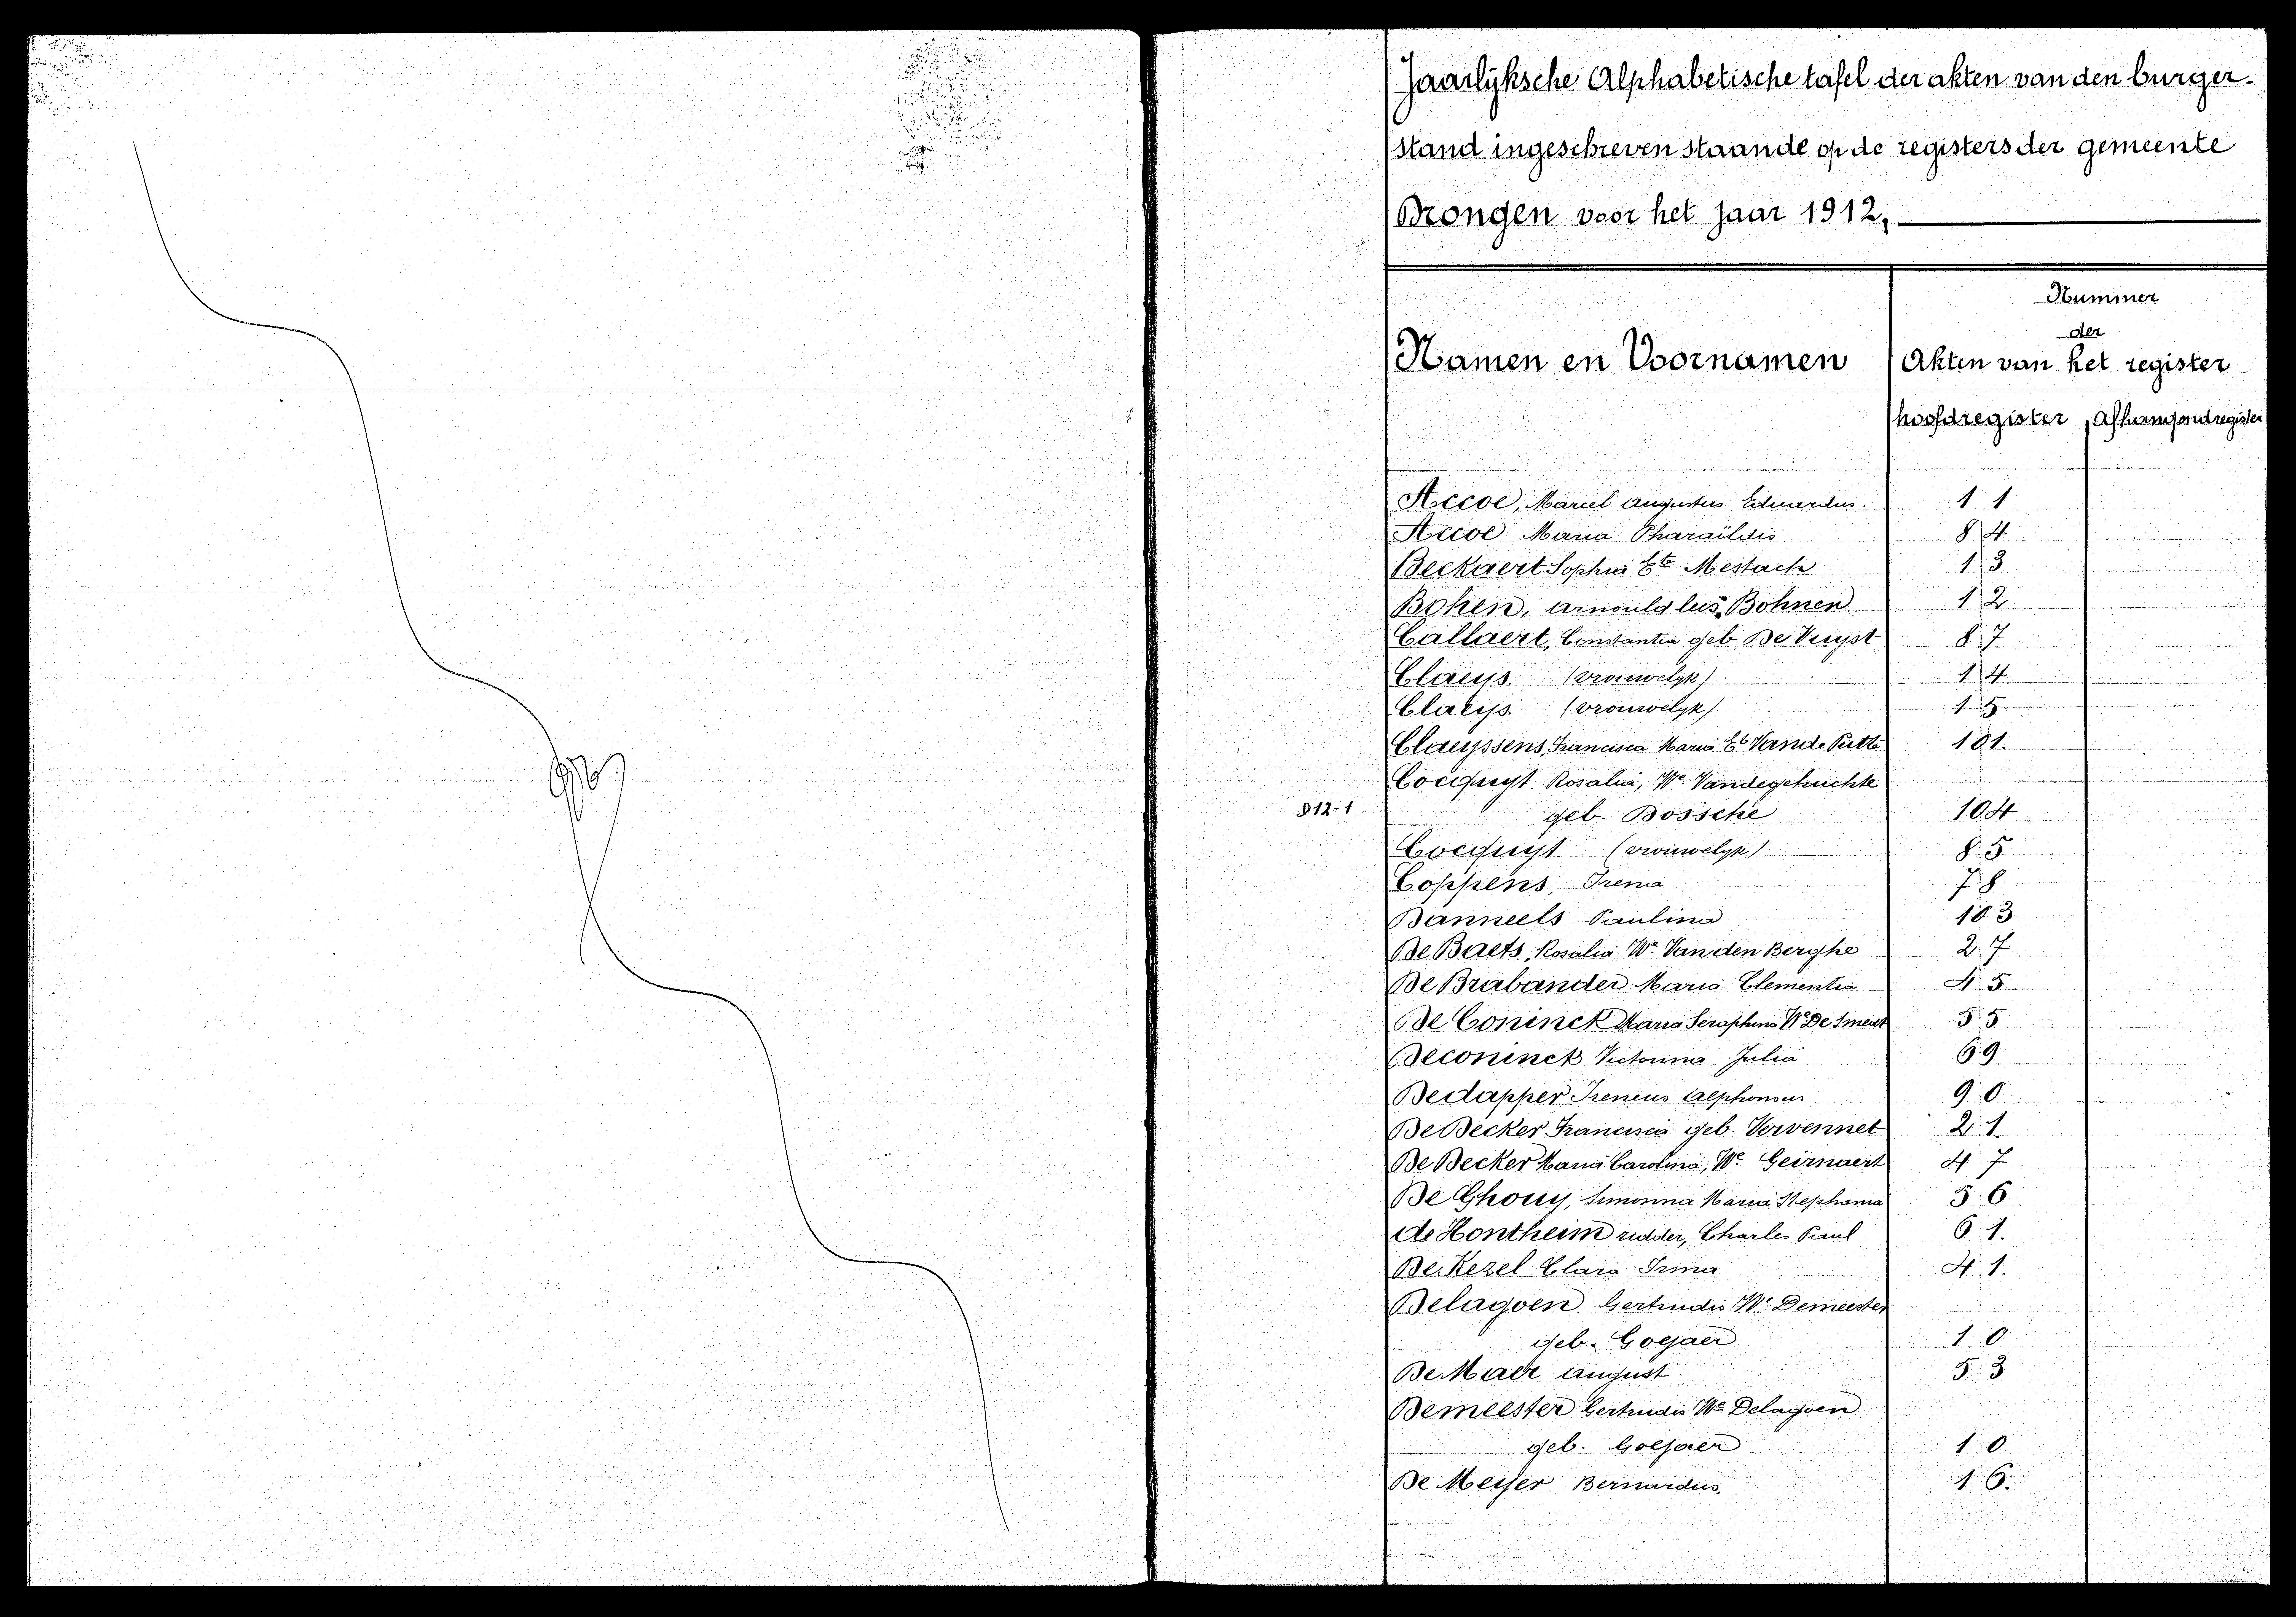 Jaarlijksche Alphabetische tafel der akten van den burger-
stand ingeschreven staande op de registers der gemeente
Drongen voor het jaar 1912,
Nummer
der
Namen en Voornamen Akten van het register
hoofdregister Afhangendregister
Accoe, Marcel Augustus Eduardus. 11
Accoe Maria Pharaïldis 84
Beckaert Sophia Mestach 13
Bohen, Arnould Bohnen 12
Callaert, Constantia geb De Vuyst 87
Claeys. (vrouwelyk) 14
Claeys. (vrouwelyk) 15
Claeyssens, Francisca Maria Vande Putte 101.
Cocquyt. Rosalia, We. Vandegehuchte
D12-1 geb. Bossche 104
Cocquyt. (vrouwelyk) 85
Coppens, Irena 78
Danneels Paulina 103
De Baets, Rosalia We. Van den Berghe 27
De Brabander Maria Clementia 45
De Coninck Maria Seraphina We De Smedt 55
Deconinck Victorina Julia 69
Dedapper Ireneus Alphonsus 90
De Decker Francisca geb. Vervennet 21.
De Decker Maria Carolina, We. Geirnaert 47
De Ghouy, Simonna Maria Stephania 56
de Hontheim ridder, Charles Paul 61.
De Kezel Clara Irma 41.
Delagoen Gertrudis We Demeester
geb. Goejaer 10
De Maer August 53
Demeester Gertrudis We Delagoen
geb. Goejaer 10
De Meyer Bernardus, 16.